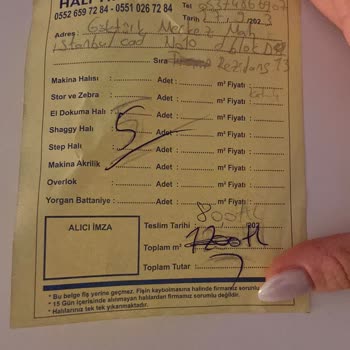 HALI
0552 659 72 84 - 0551 026 72 84 Tel
Tarih 202 3
Adres : Göktürk Merkez Mah
istanbul cad No
Sıra
Makina Halısı : Adet : m² Fiyatı :
Stor ve Zebra : Adet : m² Fiyatı :
El Dokuma Halı : Adet : m² Fiyatı :
Shaggy Halı : 5 Adet : m² Fiyatı :
Step Halı : Adet : m² Fiyatı :
Makina Akrilik : Adet : m² Fiyatı :
Overlok : Adet : m² Fiyatı :
Yorgan Battaniye : Adet : m² Fiyatı :
800TL
ALICI İMZA Teslim Tarihi /202
Toplam m² 1200TL
Toplam Tutar :
* Bu belge fiş yerine geçmez. Fişin kaybolmasına halinde firmamız sorumlu
* 15 Gün içerisinde alınmayan halılardan firmamız sorumlu değildir.
* Halılarınız tek tek yıkanmaktadır.